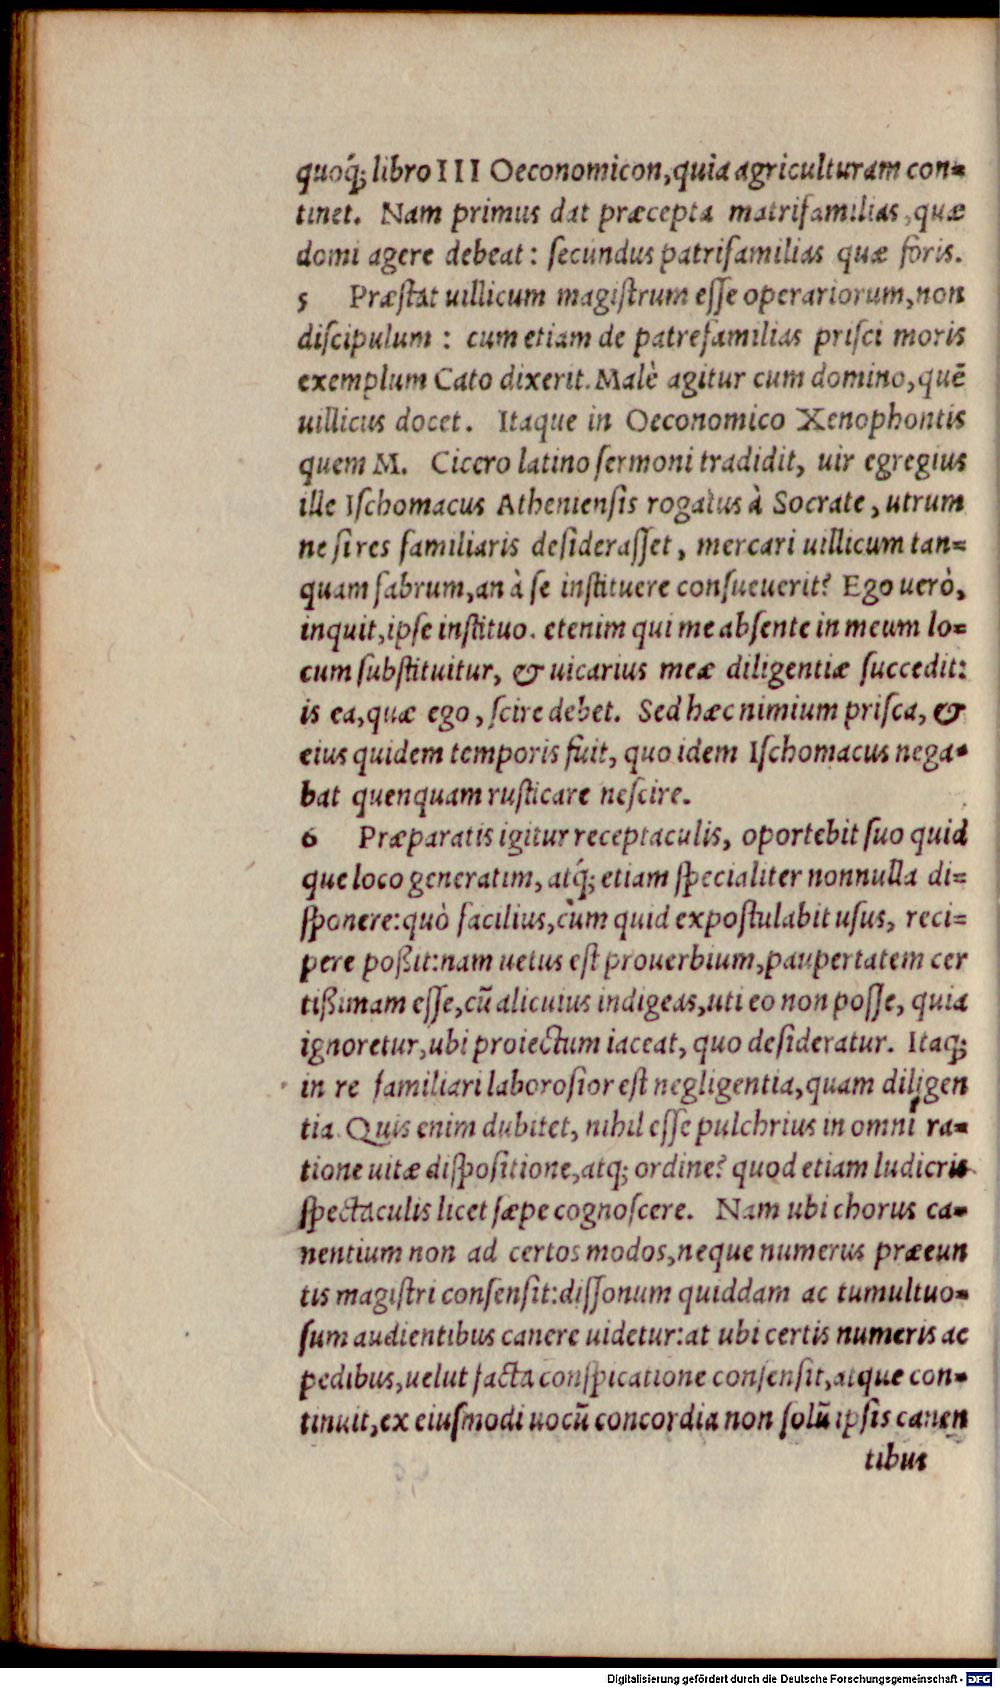 quoq́; libro III Oeconomicon, quia agriculturam con=
tinet. Nam primus dat præcepta matrifamilias, quæ
domi agere debeat: ſecundus patrifamilias quæ foris.
5 Præſtat uillicum magiſtrum eſſe operariorum, non
diſcipulum: cum etiam de patrefamilias priſci moris
exemplum Cato dixerit. Malè agitur cum domino, quẽ
uillicus docet. Itaque in Oeconomico Xenophontis
quem M. Cicero latino ſermoni tradidit, uir egregius
ille Iſchomacus Athenienſis rogatus à Socrate, utrum
ne ſi res familiaris deſideraſſet, mercari uillicum tan=
quam fabrum, an à ſe inſtituere conſueuerit? Ego uerò,
inquit, ipſe inſtituo. etenim qui me abſente in meum lo=
cum ſubſtituitur, & uicarius meæ diligentiæ ſuccedit:
is ea, quæ ego, ſcire debet. Sed hæc nimium priſca, &
eius quidem temporis fuit, quo idem Iſchomacus nega=
bat quenquam ruſticare neſcire.
6 Præparatis igitur receptaculis, oportebit ſuo quid
que loco generatim, atq́; etiam ſpecialiter nonnulla di=
ſponere: quò facilius, cùm quid expoſtulabit uſus, reci=
pere poßit: nam uetus eſt prouerbium, paupertatem cer
tißimam eſſe, cũ alicuius indigeas, uti eo non poſſe, quia
ignoretur, ubi proiectum iaceat, quo deſideratur. Itaq;
in re familiari laborosior eſt negligentia, quam diligen
tia. Quis enim dubitet, nihil eſſe pulchrius in omni ra=
tione uitæ diſpoſitione, atq; ordine? quod etiam ludicris
ſpectaculis licet ſæpe cognoſcere. Nam ubi chorus ca=
nentium non ad certos modos, neque numerus præeun
tis magiſtri conſenſit: diſſonum quiddam ac tumultuo=
ſum audientibus canere uidetur: at ubi certis numeris ac
pedibus, uelut facta conſpicatione conſenſit, atque con=
tinuit, ex eiuſmodi uocũ concordia non ſolũ ipſis canen
tibus
Digitalisierung gefördert durch die Deutsche Forschungsgemeinschaft - DFG